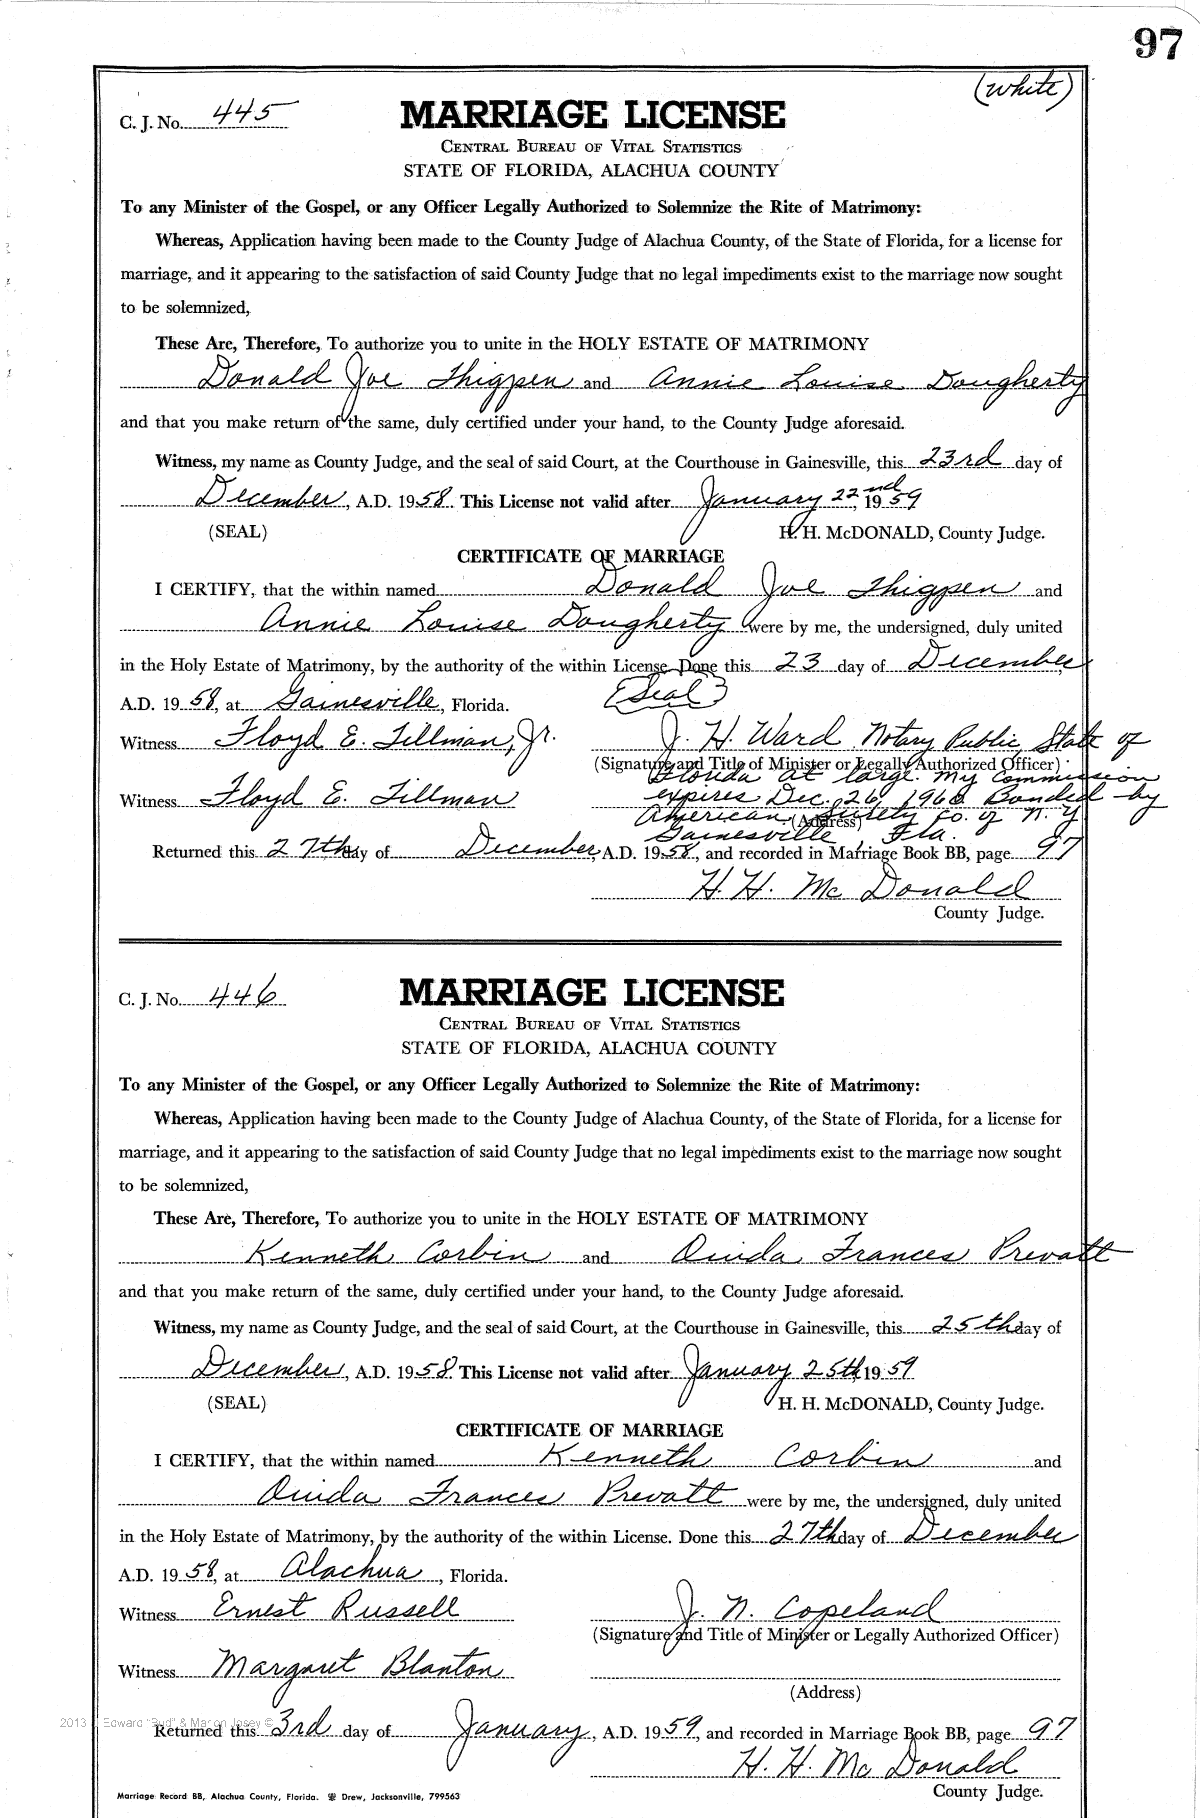 97
(white)
C. J. No. 445
MARRIAGE LICENSE
CENTRAL BUREAU OF VITAL STATISTICS
STATE OF FLORIDA, ALACHUA COUNTY
To any Minister of the Gospel, or any Officer Legally Authorized to Solemnize the Rite of Matrimony:
Whereas, Application having been made to the County Judge of Alachua County, of the State of Florida, for a license for
marriage, and it appearing to the satisfaction of said County Judge that no legal impediments exist to the marriage now sought
to be solemnized,
These Are, Therefore, To authorize you to unite in the HOLY ESTATE OF MATRIMONY
Donald Joe Thigpen and Annie Louise Dougherty
and that you make return of the same, duly certified under your hand, to the County Judge aforesaid.
Witness, my name as County Judge, and the seal of said Court, at the Courthouse in Gainesville, this 23rd day of
December, A.D. 1958. This License not valid after January 22nd, 1959
(SEAL) H. H. McDONALD, County Judge.
CERTIFICATE OF MARRIAGE
I CERTIFY, that the within named Donald Joe Thigpen and
Annie Louise Dougherty were by me, the undersigned, duly united
in the Holy Estate of Matrimony, by the authority of the within License. Done this 23 day of December,
A.D. 1958, at Gainesville, Florida. (Seal)
Witness Floyd E. Tillman, Jr. J. H. Ward Notary Public, State of
(Signature and Title of Minister or Legally Authorized Officer)
Florida at large. My Commission
Witness Floyd E. Tillman expires Dec. 26, 1960. Bonded by
American Surety Co. of N. Y.
(Address)
Gainesville, Fla.
Returned this 27th day of December, A.D. 1958, and recorded in Marriage Book BB, page 97
H. H. McDonald
County Judge.
C. J. No. 446
MARRIAGE LICENSE
CENTRAL BUREAU OF VITAL STATISTICS
STATE OF FLORIDA, ALACHUA COUNTY
To any Minister of the Gospel, or any Officer Legally Authorized to Solemnize the Rite of Matrimony:
Whereas, Application having been made to the County Judge of Alachua County, of the State of Florida, for a license for
marriage, and it appearing to the satisfaction of said County Judge that no legal impediments exist to the marriage now sought
to be solemnized,
These Are, Therefore, To authorize you to unite in the HOLY ESTATE OF MATRIMONY
Kenneth Corbin and Ouida Frances Prevatt
and that you make return of the same, duly certified under your hand, to the County Judge aforesaid.
Witness, my name as County Judge, and the seal of said Court, at the Courthouse in Gainesville, this 25th day of
December, A.D. 1958. This License not valid after January 25th, 1959
(SEAL) H. H. McDONALD, County Judge.
CERTIFICATE OF MARRIAGE
I CERTIFY, that the within named Kenneth Corbin and
Ouida Frances Prevatt were by me, the undersigned, duly united
in the Holy Estate of Matrimony, by the authority of the within License. Done this 27th day of December
A.D. 1958, at Alachua, Florida.
Witness Ernest Russell J. N. Copeland
(Signature and Title of Minister or Legally Authorized Officer)
Witness Margaret Blanton
(Address)
2013 Edward "Bud" & Marion Josey ©
Returned this 3rd day of January, A.D. 1959, and recorded in Marriage Book BB, page 97
H. H. McDonald
County Judge.
Marriage Record BB, Alachua County, Florida. Drew, Jacksonville, 799563